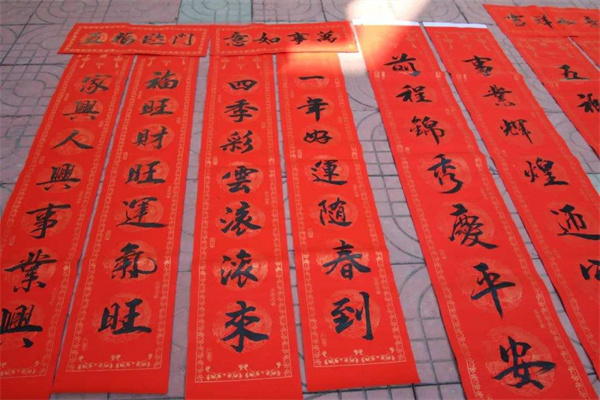 五福临门
萬事如意
傢興人興事業興
福旺財旺運氣旺
四季彩雲滾滾來
一年好運隨春到
前程錦秀慶平安
事業輝煌迎
五福